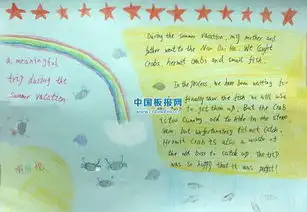 a meaningful
trip during the
summer vacation
During the summer vacation, my mother and
father went to the Nan Dai He. We caught
Crabs, hermit crabs and small fish.
In the process, we had been waiting for
finally saw the fish we will use
to get them up. But the crab
is too cunning, and to hide in the stone
seam, but unfortunately did not catch.
Hermit crabs is also a waste of
the old boss to catch up. The trip
was so happy that it was perfect!
中国板报网